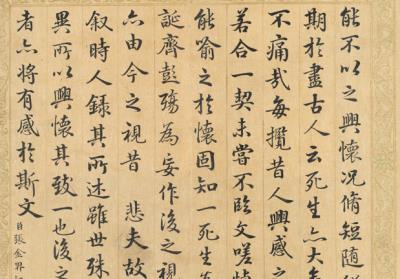 能不以之興懷況脩短隨
期於盡古人云死生亦大
不痛哉每攬昔人興感之
若合一契未嘗不臨文嗟悼
能喻之於懷固知一死生
誕齊彭殤為妄作後之視
亦由今之視昔 悲夫故
叙時人錄其所述雖世殊
異所以興懷其致一也後之
者亦將有感於斯文
臣張金界